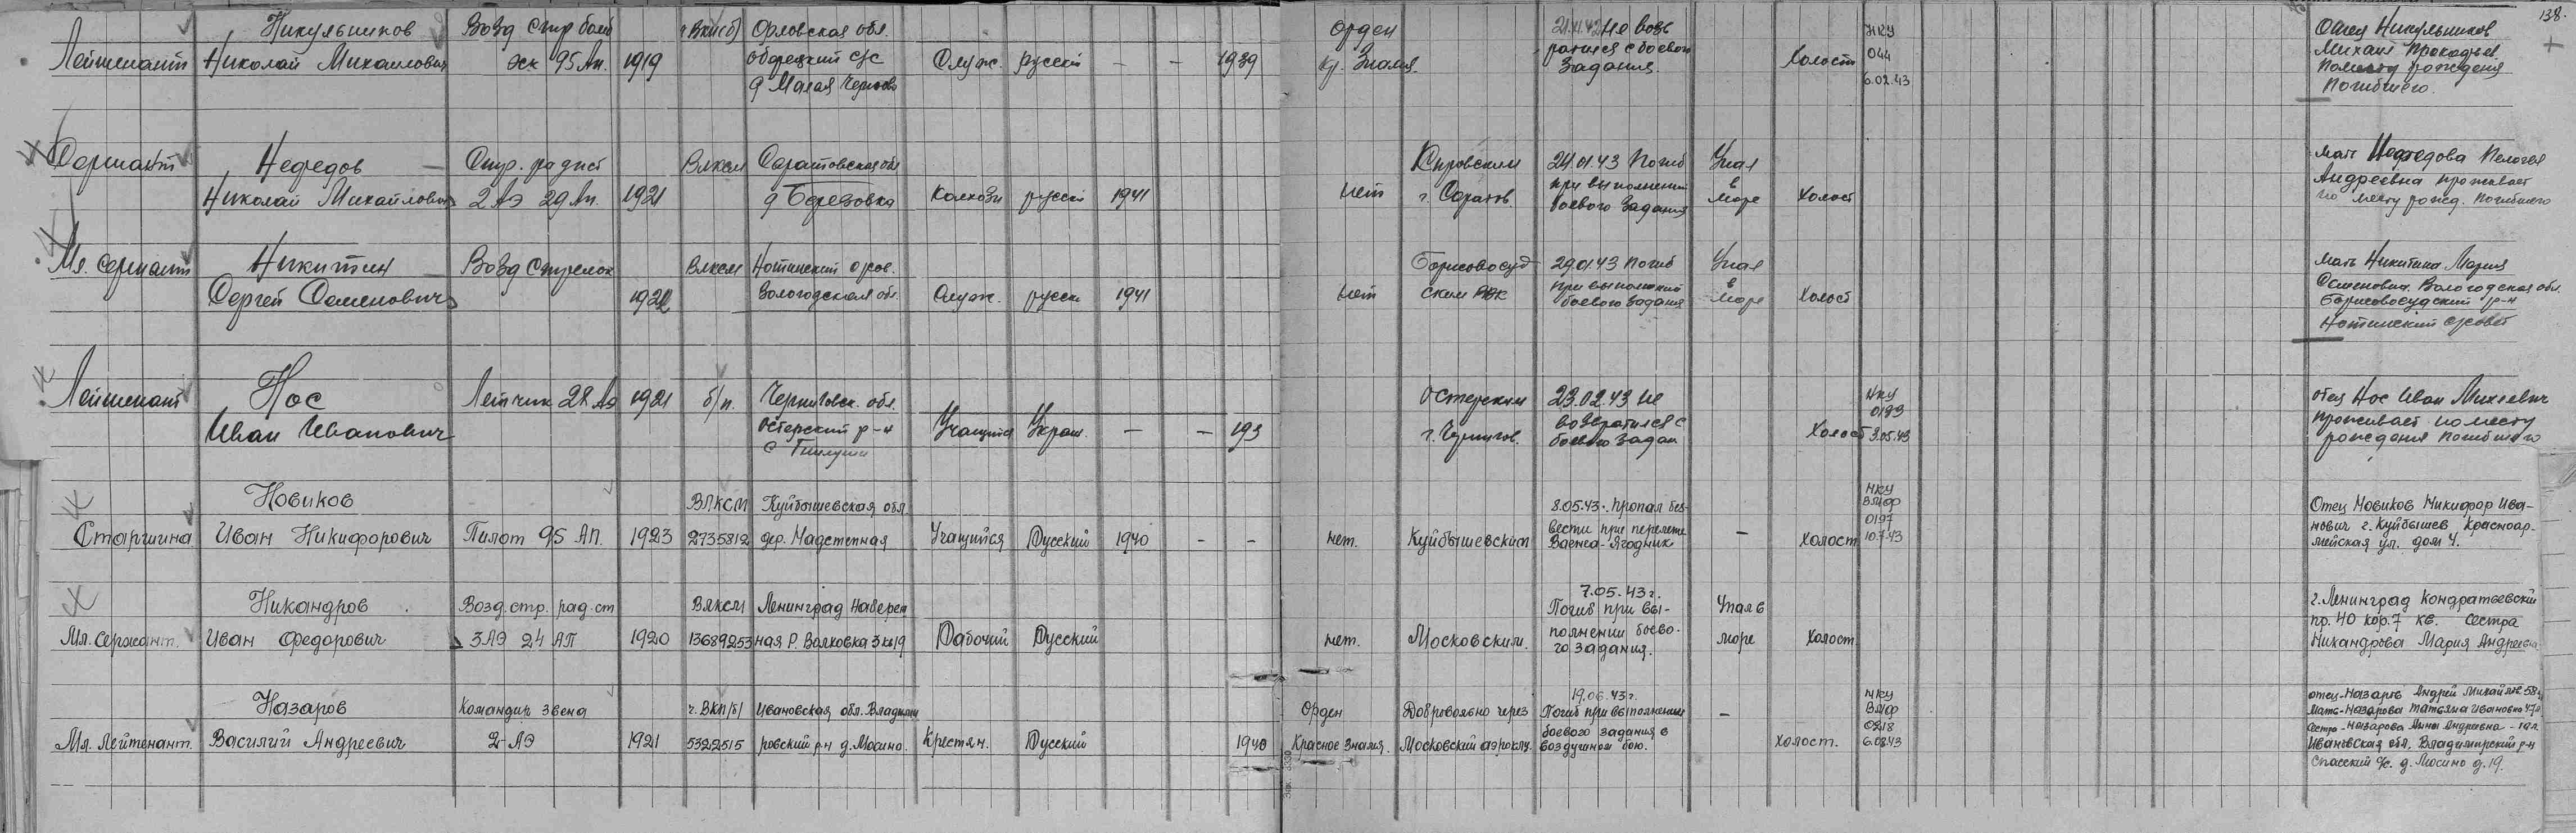 138.
Лейтенант Никульников Николай Михайлович Возд стр бомб эск 95 Ап. 1919 ВКП(б) Орловская обл. с/с д Малая Служ. русский — — 1939 Орден Кр. Знамя. 21.11.42 Не возвратился с боевого задания. Холост НКУ 044 6.02.43 Отец Никульников Михаил Прокофьев. По месту рождения Погибшего.
Сержант Нефедов Николай Михайлович Стр. радист 2 АЭ 29 Ап. 1921 Влксм Саратовская обл д Березовка Колхозн русский 1941 нет Кировским г. Саратов. 24.01.43 Погиб при выполнении боевого задания Упал в море Холост мать Нефедова Пелагея Андреевна проживает по месту рожд. Погибшего
Мл. Сержант Никитин Сергей Семенович Возд Стрелок 1922 Влксм сов. Вологодская обл. Служ. русск 1941 нет Борисовосудским РВК 29.01.43 Погиб при выполнении боевого задания Упал в море Холост мать Никитина Мария Семеновна. Вологодская обл. Борисовосудский р-н с/совет
Лейтенант Нос Иван Иванович Летчик 28 Аэ 1921 б/п. Черниговск. обл. Остерский р-н с Учащийся Украин. — — 193 Остерским г. Чернигов. 23.02.43 Не возвратился с боевого задан Холост НКУ 0193 3.05.43 отец Нос Иван Михеевич проживает по месту рождения погибшего
Старшина Новиков Иван Никифорович Пилот 95 АП. 1923 ВЛКСМ 2735812 Куйбышевская обл. дер. Надстепная Учащийся Русский 1940 - - нет. Куйбышевским 8.05.43. Пропал без вести при перелете Ваенга-Ягодник — холост НКУ ВМФ 0197 10.7.43 Отец Новиков Никифор Иванович г. Куйбышев Красноармейская ул. дом 4.
Мл. Сержант. Никандров Иван Федорович Возд. стр. рад-ст 3 АЭ 24 АП 1920 Влксм 13689253 Ленинград Набережная Р. Волковка 3 кв 19 Рабочий Русский нет. Московским. 7.05.43 г. Погиб при выполнении боевого задания. Упал в море Холост г. Ленинград Кондратьевский пр. 40 кор. 7 кв. Сестра Никандрова Мария Андреевна
Мл. Лейтенант. Назаров Василий Андреевич Командир звена 2 АЭ 1921 ч. ВКП/б/ 5322515 Ивановская обл. Владимировский р-н д. Мосино. Крестян. Русский 1940 Орден Красное знамя. Добровольно через Московский аэроклу. 19.06.43 г. Погиб при выполнении боевого задания в воздушном бою. — Холост. НКУ ВМФ 0218 6.08.43 отец-Назаров Андрей Михайлов 58 л. Мать-Назарова Татьяна Ивановна 47 л Сестра-Назарова Анна Андреевна - 19 л. Ивановская обл. Владимирский р-н Спасский с/с. д. Мосино д. 19.